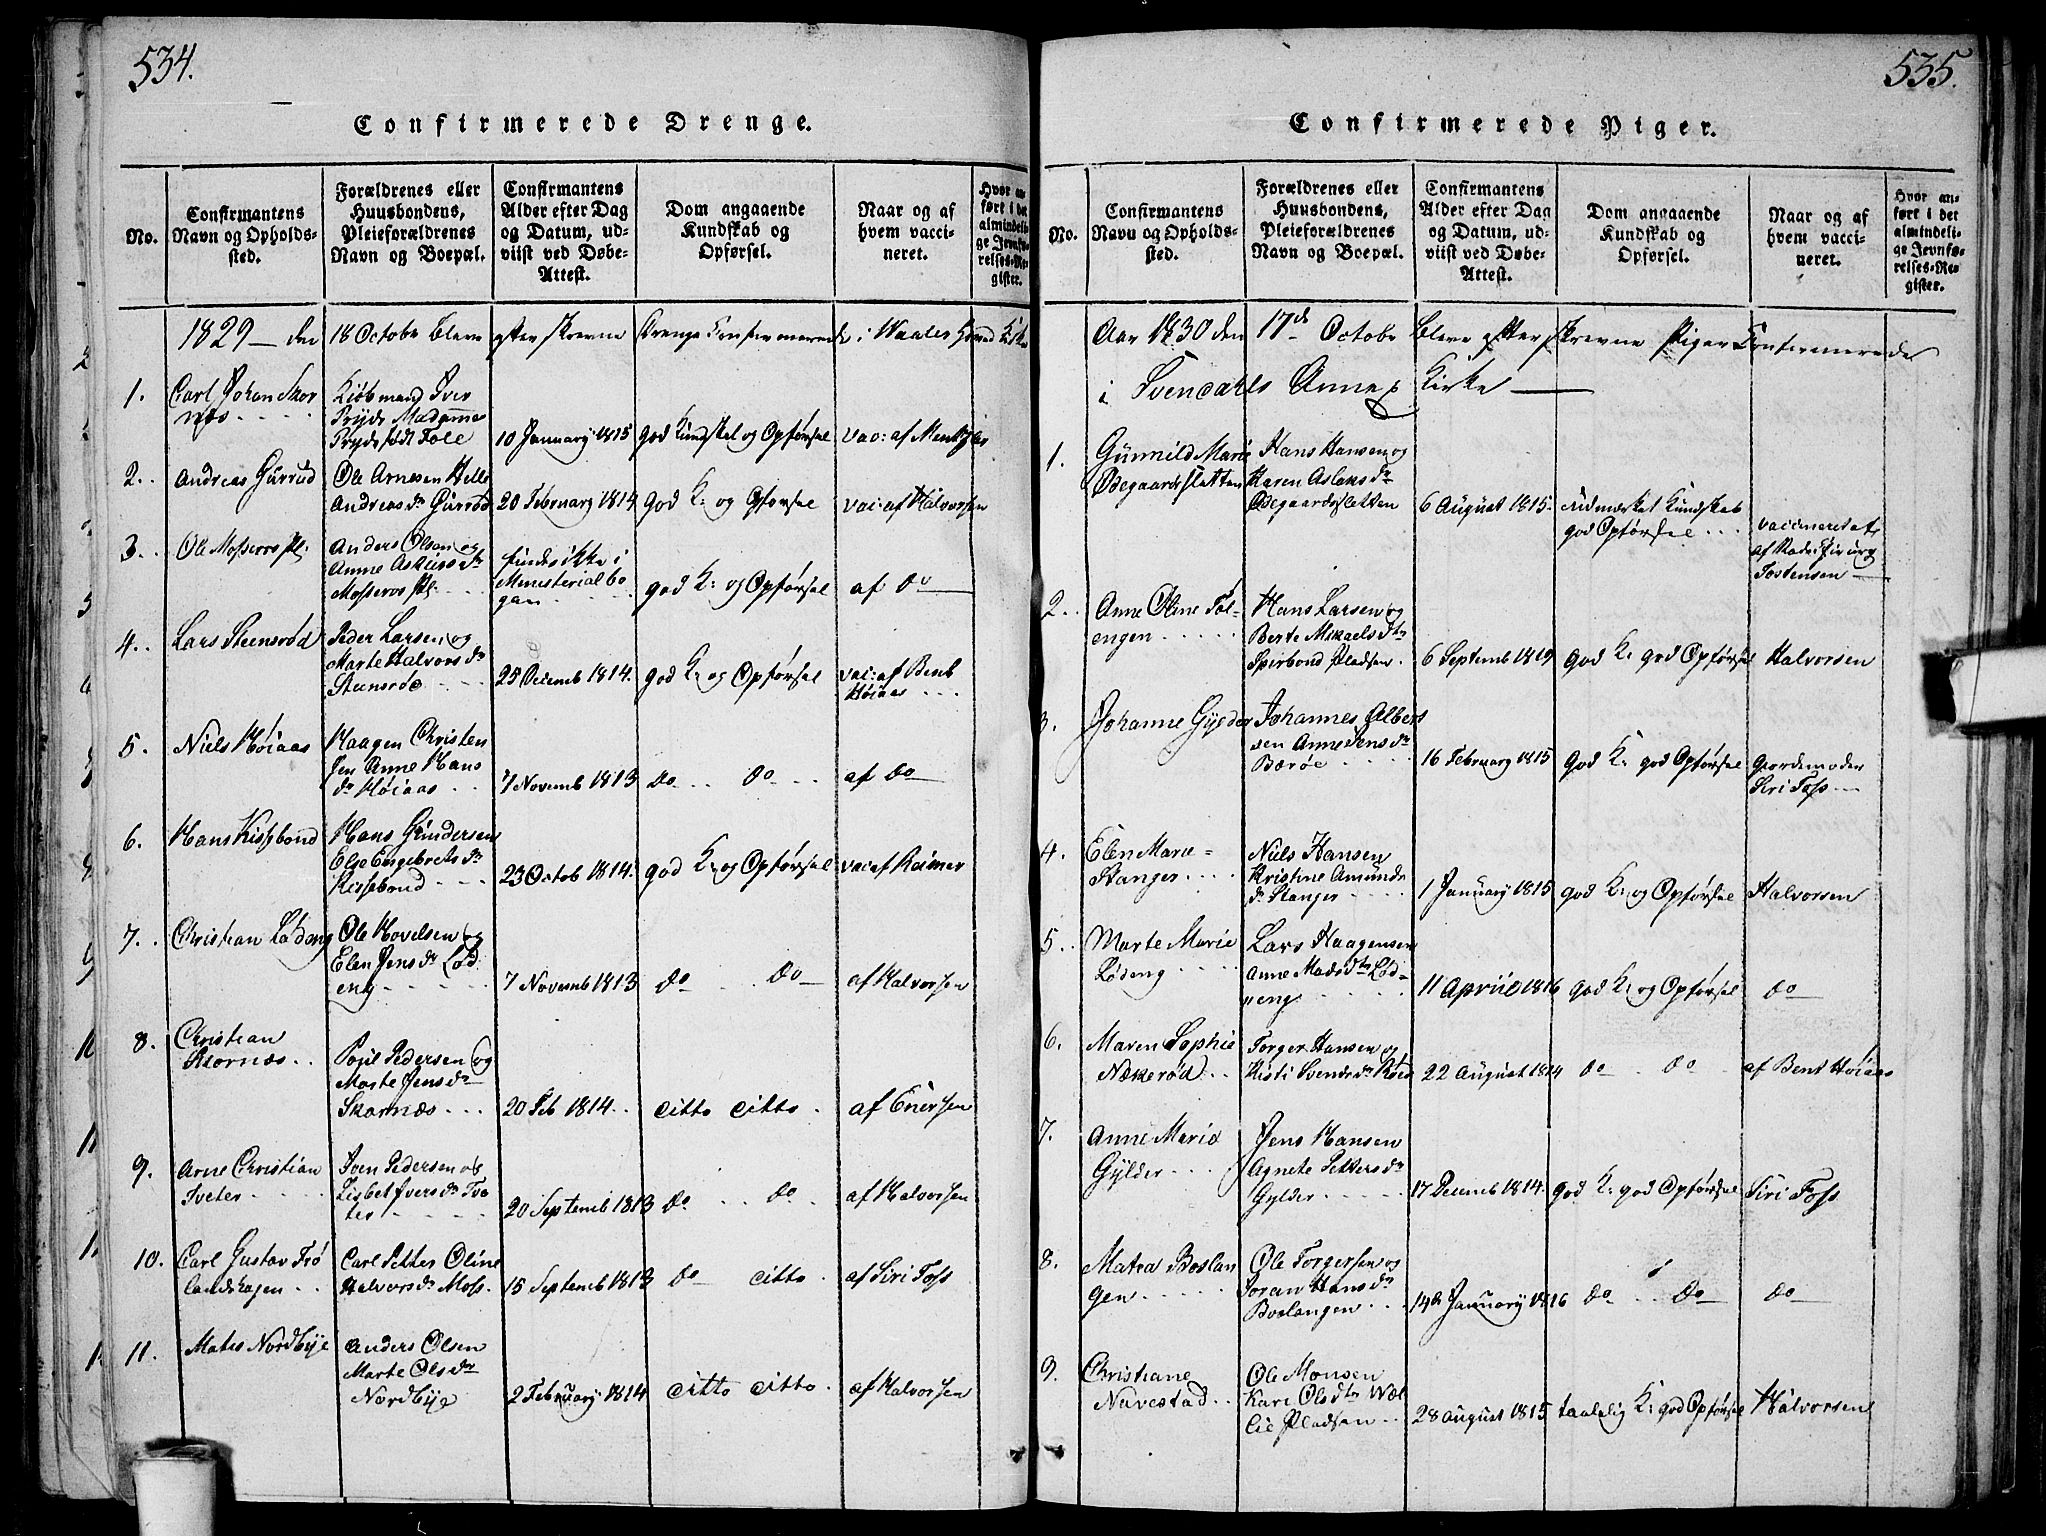 534.
Confirmerede Drenge.
No.
Confirmantens
Navn og Opholds-
sted.
Forældrenes eller
Huusbondens,
Pleieforældrenes
Navn og Boepæl.
Confirmantens
Alder efter Dag
og Datum, ud-
viist ved Døbe-
Attest.
Dom angaaende
Kundskab og
Opførsel.
Naar og af
hvem vacci-
neret.
Hvor an-
ført i det
almindeli-
ge Jevnfø-
relses-Re-
gister.
1829 - den 18 Octobr bleve efterskrevne Drenge Confirmerede i Kirke
1. Carl Johan Skor
næs
Kiøbmand Iver
Pryds Madamme
Pryds født Tolle
10 January 1815
god Kundskab og Opførsel
vac: af
2. Andreas Gurrud
Ole Arnesen Helle
Andreasdr Gurrød
20 February 1814
god K: og Opførsel
vac: af Halvorsen
3. Ole Mosseros pl:
Anders Olsen og
Anne Askersdr
Mosseros pl:
findes ikke i
Ministerialbo
gen
god K: og Opførsel
af do
4. Lars Steensrød
Peder Larsen og
Marte Halvorsdr
Steensrød
25 Decemb 1814.
god K: og Opførsel
vac: af Bent
Høiaas
5. Niels Høiaas
Haagen Christen
sen Anne Hans
dr Høiaas
7 Novemb 1813
do do
af do
6. Hans Kissebond
Hans Gundersen
Else Engebretsdr
Kissebond
23 Octob 1814.
god K: og Opførsel
vac: af Reimer
7. Christian Lødeng
Ole Hovelsen og
Elen Jensdr Lød
eng
7 Novemb 1813
do do
af Halvorsen
8. Christian
Skornæs
Poul Pedersen og
Marte Jensdr
Skornæs
20 Feb 1814.
ditto ditto
af Enersen
9. Arne Christian
Tveter
Sven Pedersen og
Lisbet Iversdr Tve
ter
20 Septemb 1813
do do
af Halvorsen
10. Carl Gustav Frø
landshagen
Carl Petter Oline
Halvorsdr Moss.
15 Septemb 1813
do ditto
af Siri Foss
11. Mates Nordbye
Anders Olsen
Marte Olsdr
Nordbye
2 February 1814
ditto ditto
af Halvorsen
535.
Confirmerede Piger.
No.
Confirmantens
Navn og Opholds-
sted.
Forældrenes eller
Huusbondens,
Pleieforældrenes
Navn og Boepæl.
Confirmantens
Alder efter Dag
og Datum, ud-
viist ved Døbe-
Attest.
Dom angaaende
Kundskab og
Opførsel.
Naar og af
hvem vacci-
neret.
Hvor an-
ført i det
almindeli-
ge Jevnfø-
relses-Re-
gister.
Aar 1830 den 17de Octobr bleve efterskrevne Piger Confirmerede
i Svendahls Annex Kirke
1. Gunnild Marie
Ødegaardsslætten
Hans Hansen og
Karen Aslaksdr
Ødegaardsslætten
6 August 1815.
udmærket Kundskab
god Opførsel
vaccineret af
af
Tostensen
2. Anne Oline Føl-
engen
Hans Larsen og
Berte Mikaelsdtr
Spirbond Pladsen.
6 Septemb 1819
god K: god Opførsel
Halvorsen
3. Johanne Gylder
Johannes Albert
sen Anne Jensdr
Bærøe
16 February 1815
god K: god Opførsel
Gjordemoder
Siri Foss
4. Elen Marie
Stanger
Niels Hansen
Kristine Amunds
dr Stanger
1 January 1815
god K: og Opførsel
Halvorsen
5. Marte Marie
Lødeng
Lars Haagensen
Anne Madsdtr Lød-
eng
11 April 1816
god K: og Opførsel
do
6. Maren Sophie
Nækerød
Torger Hansen og
Kisti Svendsdr
22 August 1814
do do
af Bent Høiaas
7. Anne Maria
Gylder
Jens Hansen
Agnete Pettersdr
Gylder
17 Decemb 1814.
god K: god Opførsel
Siri Foss
8. Matea Boslan
gen
Ole Torgersen og
Joran Hansdr
Boslangen
14de January 1816
do do
do
9. Christiane
Navestad
Ole Monsen
Kari Olsdtr Wæl
lie Pladsen
28 August 1815
taalelig K: god Opførsel
Halvorsen